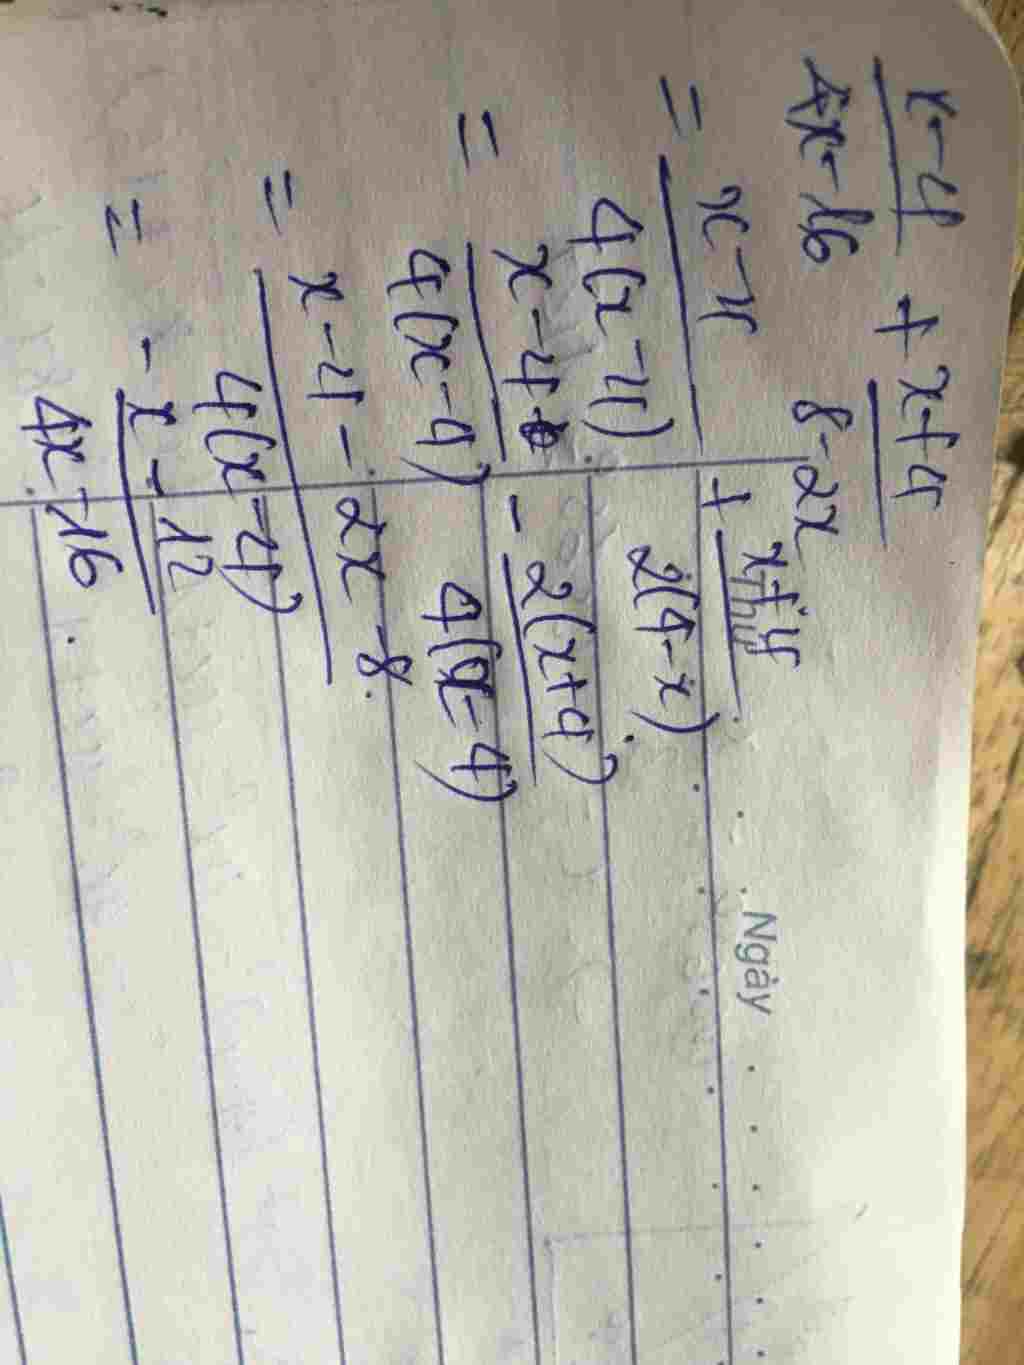 x-4/4x-16 + x+4/8-2x
= x-4/4(x-4) + x+4/2(4-x)
= x-4/4(x-4) - 2(x+4)/4(x-4)
= x-4-2x-8/4(x-4)
= -x-12/4x-16
Thứ
Ngày